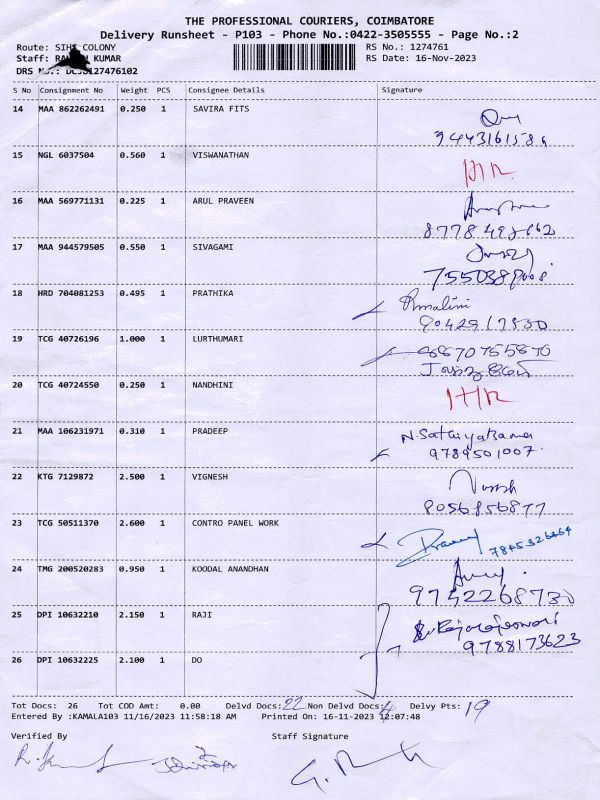 THE PROFESSIONAL COURIERS, COIMBATORE
Delivery Runsheet - P103 - Phone No.:0422-3505555 - Page No.:2
Route: SIHS COLONY RS No.: 1274761
Staff: KUMAR RS Date: 16-Nov-2023
DRS 127476102
S No Consignment No Weight PCS Consignee Details Signature
14 MAA 862262491 0.250 1 SAVIRA FITS
15 NGL 6037504 0.560 1 VISWANATHAN
16 MAA 569771131 0.225 1 ARUL PRAVEEN
17 MAA 944579505 0.550 1 SIVAGAMI
18 HRD 704081253 0.495 1 PRATHIKA
19 TCG 40726196 1.000 1 LURTHUMARI
20 TCG 40724550 0.250 1 NANDHINI
21 MAA 106231971 0.310 1 PRADEEP N.Sathiyabama
9789501007
22 KTG 7129872 2.500 1 VIGNESH
8056856877
23 TCG 50511370 2.600 1 CONTRO PANEL WORK
7845326464
24 TMG 200520283 0.950 1 KOODAL ANANDHAN
9742268730
25 DPI 10632210 2.150 1 RAJI Rajarajeswari
9788173623
26 DPI 10632225 2.100 1 DO
Tot Docs: 26 Tot COD Amt: 0.00 Delvd Docs: 22 Non Delvd Docs: 4 Delvy Pts: 19
Entered By :KAMALA103 11/16/2023 11:58:18 AM Printed On: 16-11-2023 12:07:48
Verified By Staff Signature